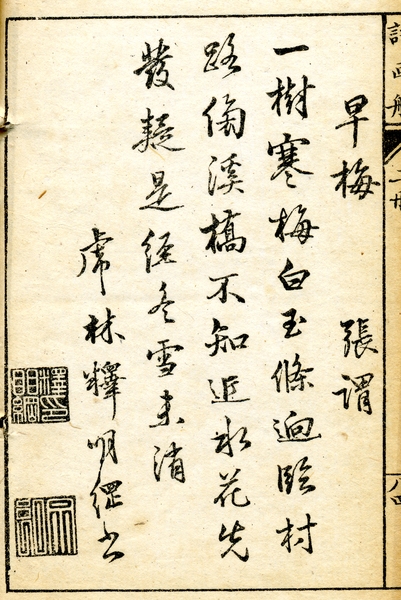 早梅 張謂
一樹寒梅白玉條逈臨村
路傍溪橋不知近水花先
發疑是經冬雪未消
虎林釋明綱書